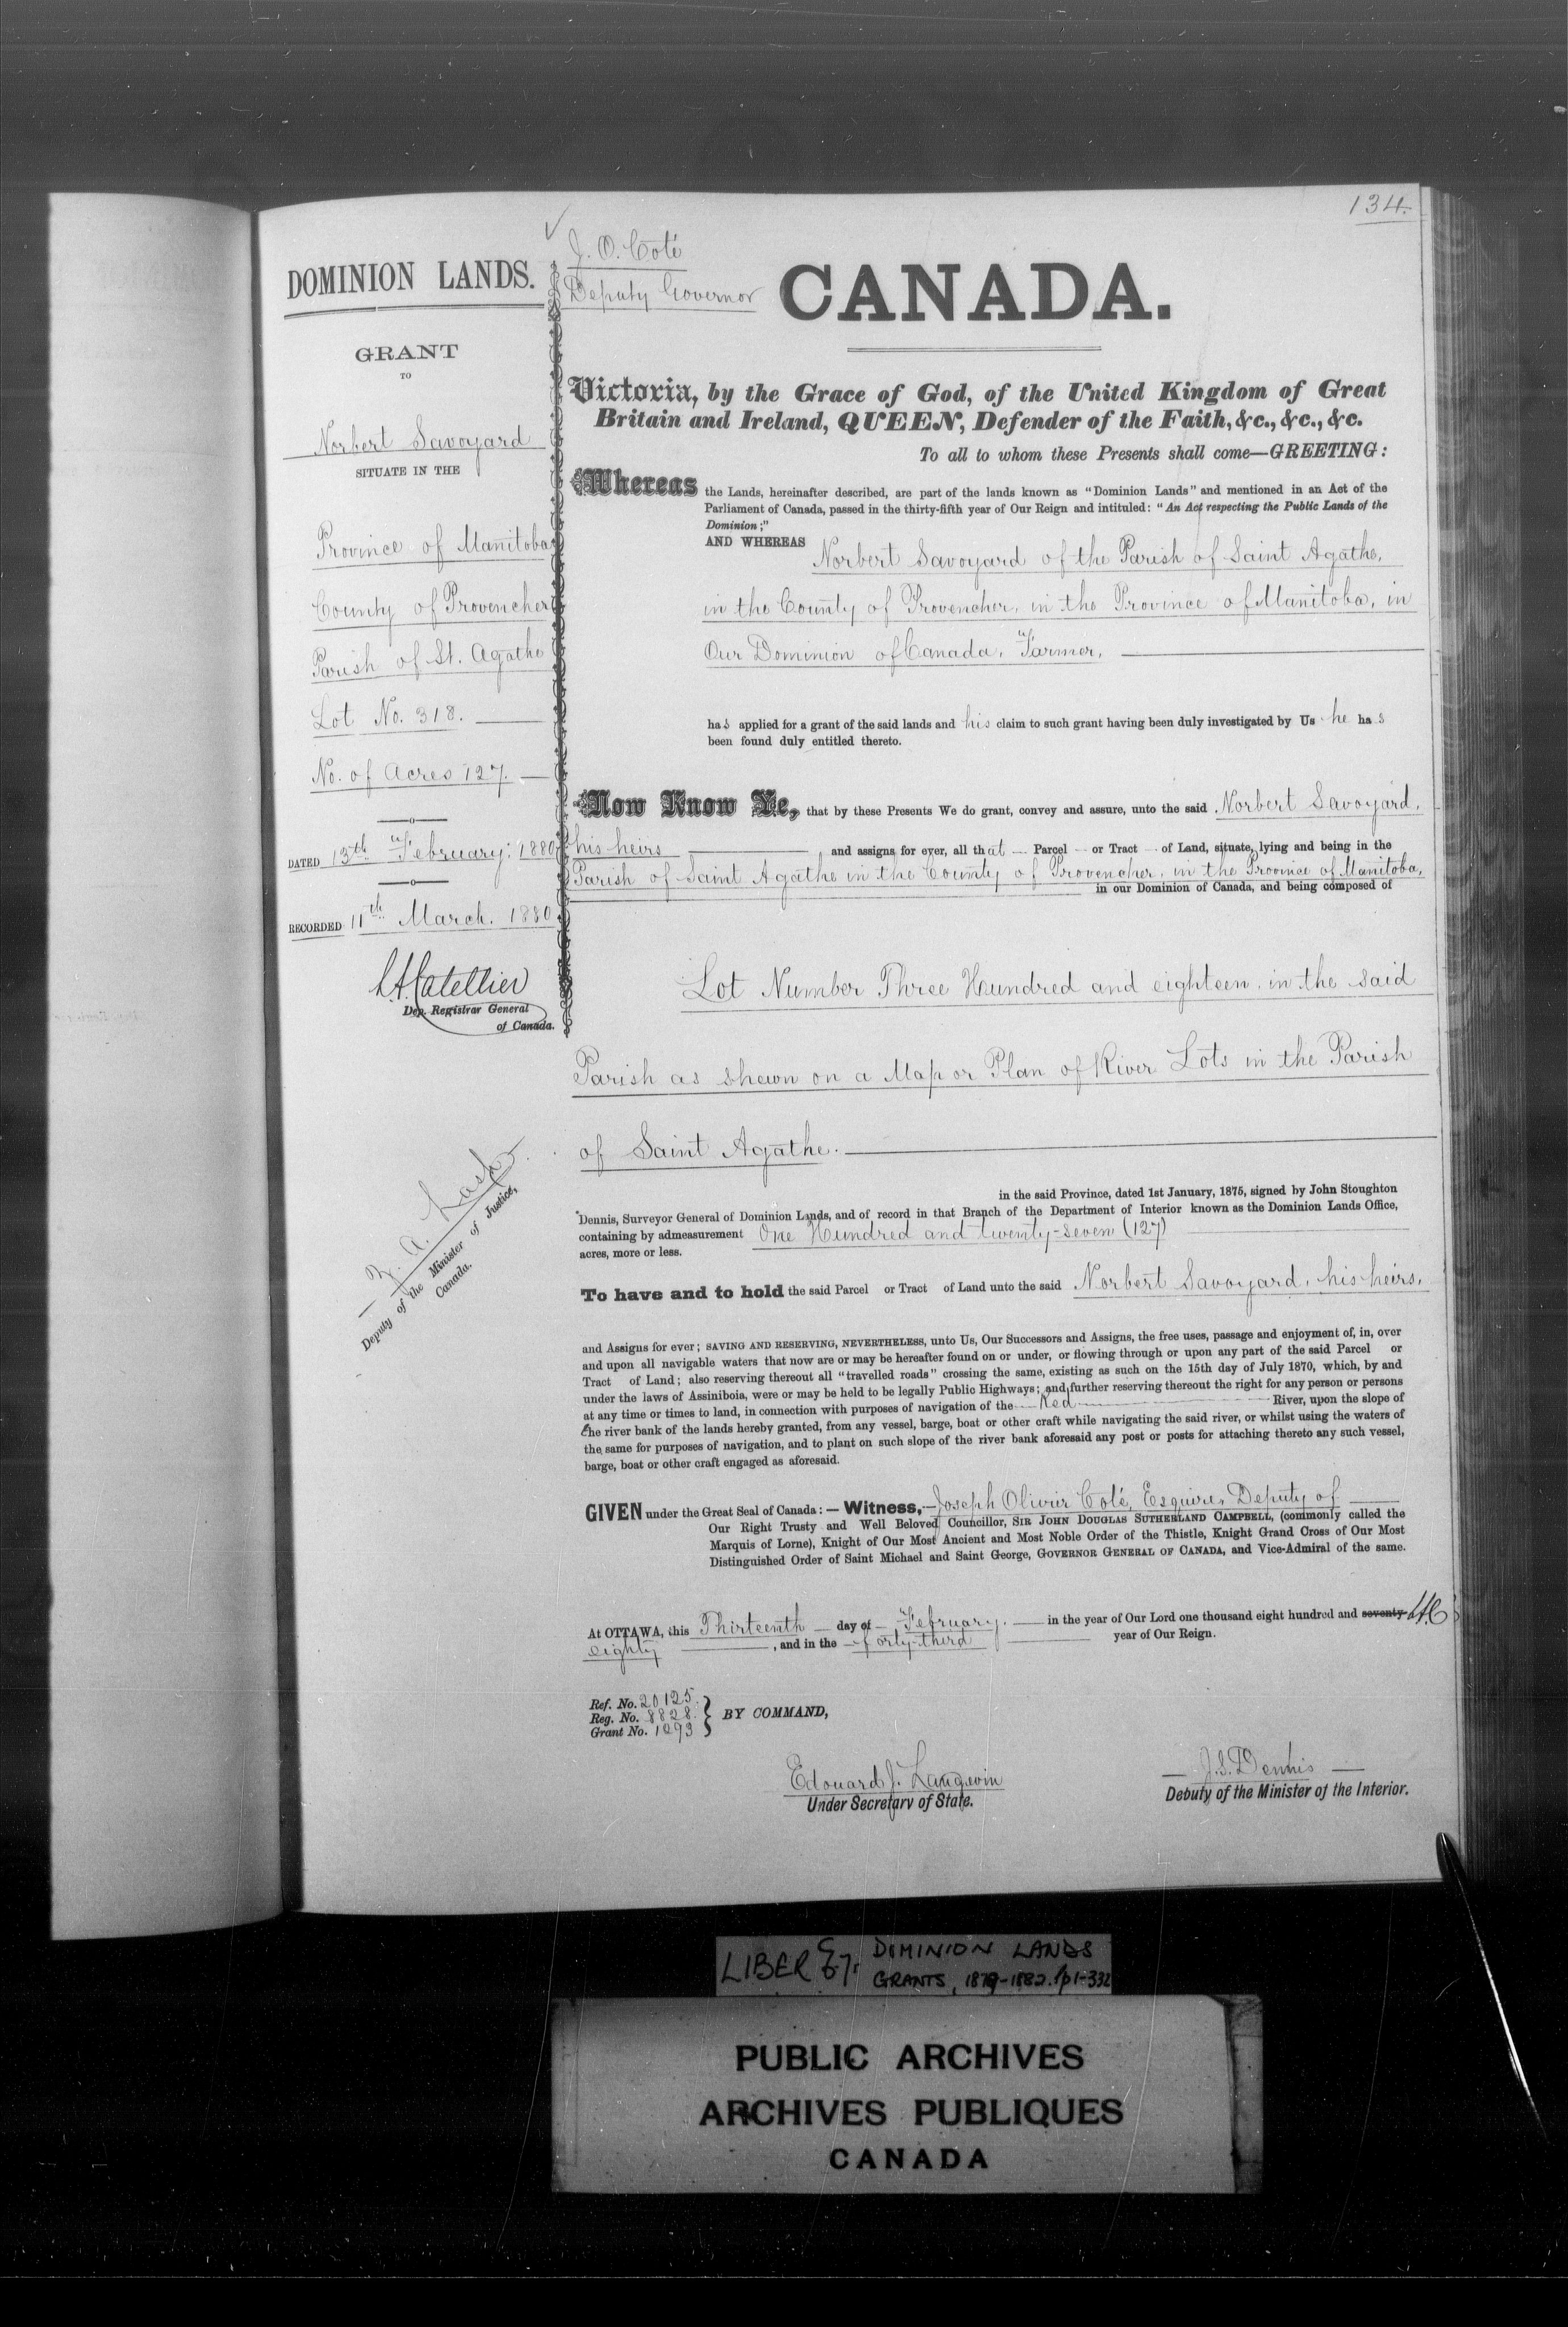 134.
J. O. Coté
Deputy Governor
DOMINION LANDS.
GRANT
TO
Norbert Savoyard
SITUATE IN THE
Province of Manitoba
County of Provencher
Parish of St. Agathe
Lot No. 318.
No. of Acres 127.
DATED 13th February: 1880
RECORDED 11th March. 1880
L.A. Catellier
Dep. Registrar General
of Canada.
Z. A. Lash
Deputy of the Minister of Justice,
Canada.
CANADA.
Victoria, by the Grace of God, of the United Kingdom of Great
Britain and Ireland, QUEEN, Defender of the Faith, &c., &c., &c.
To all to whom these Presents shall come—GREETING:
Whereas the Lands, hereinafter described, are part of the lands known as "Dominion Lands" and mentioned in an Act of the
Parliament of Canada, passed in the thirty-fifth year of Our Reign and intituled: "An Act respecting the Public Lands of the
Dominion;"
AND WHEREAS Norbert Savoyard of the Parish of Saint Agathe,
in the County of Provencher, in the Province of Manitoba, in
Our Dominion of Canada, Farmer,
has applied for a grant of the said lands and his claim to such grant having been duly investigated by Us he has
been found duly entitled thereto.
Now Know Ye, that by these Presents We do grant, convey and assure, unto the said Norbert Savoyard,
his heirs, and assigns for ever, all that Parcel or Tract of Land, situate, lying and being in the
Parish of Saint Agathe in the County of Provencher, in the Province of Manitoba,
in our Dominion of Canada, and being composed of
Lot Number Three Hundred and eighteen, in the said
Parish as shewn on a Map or Plan of River Lots in the Parish
of Saint Agathe.
in the said Province, dated 1st January, 1875, signed by John Stoughton
Dennis, Surveyor General of Dominion Lands, and of record in that Branch of the Department of Interior known as the Dominion Lands Office,
containing by admeasurement One Hundred and twenty-seven (127)
acres, more or less.
To have and to hold the said Parcel or Tract of Land unto the said Norbert Savoyard, his heirs,
and Assigns for ever; SAVING AND RESERVING, NEVERTHELESS, unto Us, Our Successors and Assigns, the free uses, passage and enjoyment of, in, over
and upon all navigable waters that now are or may be hereafter found on or under, or flowing through or upon any part of the said Parcel or
Tract of Land; also reserving thereout all "travelled roads" crossing the same, existing as such on the 15th day of July 1870, which, by and
under the laws of Assiniboia, were or may be held to be legally Public Highways; and further reserving thereout the right for any person or persons
at any time or times to land, in connection with purposes of navigation of the Red River, upon the slope of
the river bank of the lands hereby granted, from any vessel, barge, boat or other craft while navigating the said river, or whilst using the waters of
the same for purposes of navigation, and to plant on such slope of the river bank aforesaid any post or posts for attaching thereto any such vessel,
barge, boat or other craft engaged as aforesaid.
GIVEN under the Great Seal of Canada: — Witness,—Joseph Olivier Coté, Esquire, Deputy of
Our Right Trusty and Well Beloved Councillor, SIR JOHN DOUGLAS SUTHERLAND CAMPBELL, (commonly called the
Marquis of Lorne), Knight of Our Most Ancient and Most Noble Order of the Thistle, Knight Grand Cross of Our Most
Distinguished Order of Saint Michael and Saint George, GOVERNOR GENERAL OF CANADA, and Vice-Admiral of the same.
At OTTAWA, this Thirteenth day of February. in the year of Our Lord one thousand eight hundred and seventy LAC
eighty, and in the forty-third year of Our Reign.
Ref. No. 20125.
Reg. No. 8828.
Grant No. 1293
BY COMMAND,
Edouard J. Langevin
Under Secretary of State.
J.S. Dennis
Deputy of the Minister of the Interior.
LIBER DOMINION LANDS
GRANTS, 1879-1882. pp1-332
PUBLIC ARCHIVES
ARCHIVES PUBLIQUES
CANADA